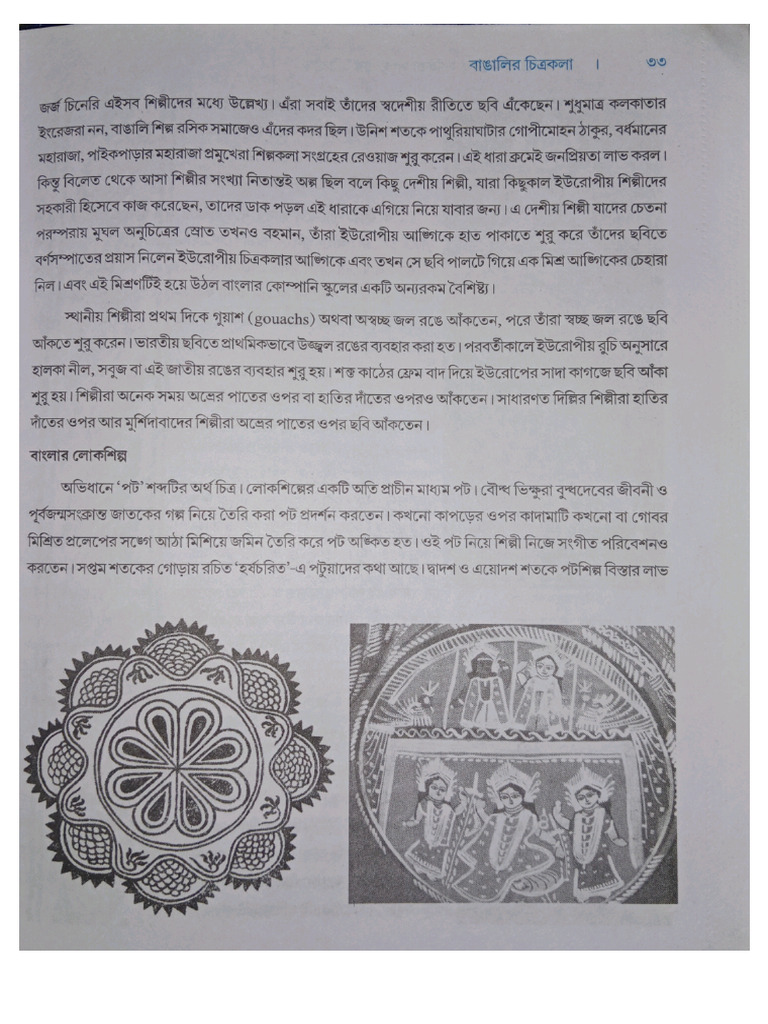 বাঙালির চিত্রকলা । ৩৩
জর্জ চিনেরি এইসব শিল্পীদের মধ্যে উল্লেখ্য। এঁরা সবাই তাঁদের স্বদেশীয় রীতিতে ছবি এঁকেছেন। শুধুমাত্র কলকাতার
ইংরেজরা নন, বাঙালি শিল্প রসিক সমাজেও এঁদের কদর ছিল। উনিশ শতকে পাথুরিয়াঘাটার গোপীমোহন ঠাকুর, বর্ধমানের
মহারাজা, পাইকপাড়ার মহারাজা প্রমুখেরা শিল্পকলা সংগ্রহের রেওয়াজ শুরু করেন। এই ধারা ক্রমেই জনপ্রিয়তা লাভ করল।
কিন্তু বিলেত থেকে আসা শিল্পীর সংখ্যা নিতান্তই অল্প ছিল বলে কিছু দেশীয় শিল্পী, যারা কিছুকাল ইউরোপীয় শিল্পীদের
সহকারী হিসেবে কাজ করেছেন, তাদের ডাক পড়ল এই ধারাকে এগিয়ে নিয়ে যাবার জন্য। এ দেশীয় শিল্পী যাদের চেতনা
পরম্পরায় মুঘল অনুচিত্রের স্রোত তখনও বহমান, তাঁরা ইউরোপীয় আঙ্গিকে হাত পাকাতে শুরু করে তাঁদের ছবিতে
বর্ণসম্পাতের প্রয়াস নিলেন ইউরোপীয় চিত্রকলার আঙ্গিকে এবং তখন সে ছবি পালটে গিয়ে এক মিশ্র আঙ্গিকের চেহারা
নিল। এবং এই মিশ্রণটিই হয়ে উঠল বাংলার কোম্পানি স্কুলের একটি অন্যরকম বৈশিষ্ট্য।
স্থানীয় শিল্পীরা প্রথম দিকে গুয়াশ (gouachs) অথবা অস্বচ্ছ জল রঙে আঁকতেন, পরে তাঁরা স্বচ্ছ জল রঙে ছবি
আঁকতে শুরু করেন। ভারতীয় ছবিতে প্রাথমিকভাবে উজ্জ্বল রঙের ব্যবহার করা হত। পরবর্তীকালে ইউরোপীয় রুচি অনুসারে
হালকা নীল, সবুজ বা এই জাতীয় রঙের ব্যবহার শুরু হয়। শক্ত কাঠের ফ্রেম বাদ দিয়ে ইউরোপের সাদা কাগজে ছবি আঁকা
শুরু হয়। শিল্পীরা অনেক সময় অভ্রের পাতের ওপর বা হাতির দাঁতের ওপরও আঁকতেন। সাধারণত দিল্লির শিল্পীরা হাতির
দাঁতের ওপর আর মুর্শিদাবাদের শিল্পীরা অভ্রের পাতের ওপর ছবি আঁকতেন।
বাংলার লোকশিল্প
অভিধানে ‘পট’ শব্দটির অর্থ চিত্র। লোকশিল্পের একটি অতি প্রাচীন মাধ্যম পট। বৌদ্ধ ভিক্ষুরা বুদ্ধদেবের জীবনী ও
পূর্বজন্মসংক্রান্ত জাতকের গল্প নিয়ে তৈরি করা পট প্রদর্শন করতেন। কখনো কাপড়ের ওপর কাদামাটি কখনো বা গোবর
মিশ্রিত প্রলেপের সঙ্গে আঠা মিশিয়ে জমিন তৈরি করে পট অঙ্কিত হত। ওই পট নিয়ে শিল্পী নিজে সংগীত পরিবেশনও
করতেন। সপ্তম শতকের গোড়ায় রচিত ‘হর্ষচরিত’-এ পটুয়াদের কথা আছে। দ্বাদশ ও এয়োদশ শতকে পটশিল্প বিস্তার লাভ